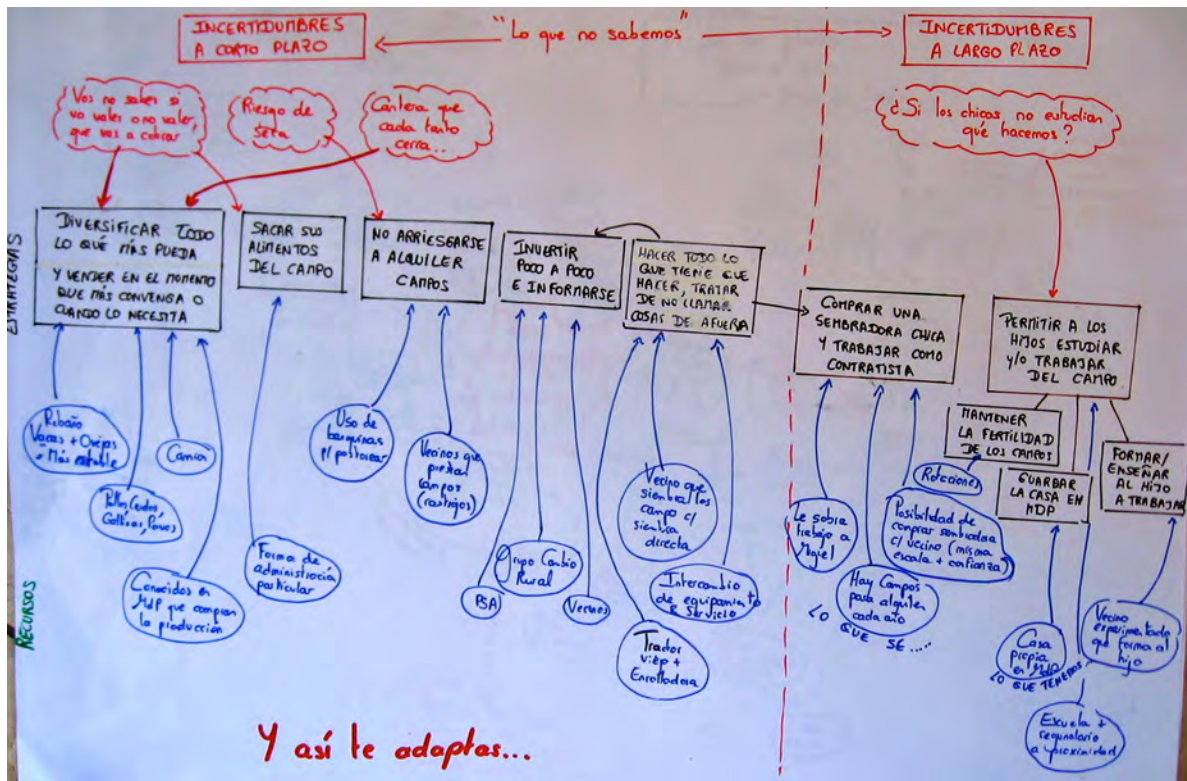 INCERTIDUMBRES
A CORTO PLAZO
"Lo que no sabemos"
INCERTIDUMBRES
A LARGO PLAZO
Vos no saber si
va valer o no valer,
que vas a cobrar
Riesgo de
seca
Cantera que
cada tanto
cerra...
¿Si los chicos no estudian
qué hacemos?
ESTRATEGIAS
DIVERSIFICAR TODO
LO QUE MÁS PUEDA
Y VENDER EN EL MOMENTO
QUE MÁS CONVENGA O
CUANDO LO NECESITA
SACAR SUS
ALIMENTOS
DEL CAMPO
NO ARRIESGARSE
A ALQUILER
CAMPOS
INVERTIR
POCO A POCO
E INFORMARSE
HACER TODO LO
QUE TIENE QUE
HACER, TRATAR
DE NO LLAMAR
COSAS DE AFUERA
COMPRAR UNA
SEMBRADORA CHICA
Y TRABAJAR COMO
CONTRATISTA
PERMITIR A LOS
HIJOS ESTUDIAR
Y/O TRABAJAR
DEL CAMPO
MANTENER
LA FERTILIDAD
DE LOS CAMPOS
GUARBAR
LA CASA EN
MDP
FORMAR/
ENSEÑAR
AL HIJO
A TRABAJAR
RECURSOS
Rebaño
Vacas + Ovejas
Más estable
Pollos, Cerdos,
Gallinas, Pavos
Conocidos en
MdP que compran
la producción
Forma de
administración
particular
Uso de
banquinas
p/ pastorear
Vecinos que
prestan
campos
(rastrojos)
PSA
Grupo Cambio
Rural
Vecinos
Vecino que
siembra los
campo c/
siembra
directa
Tractor
viejo +
Enrolladora
Intercambio
de equipamiento
& Servicio
Le sobra
trabajo a
Miguel
Hay Campos
para alquilar
cada año
Posibilidad de
comprar sembradora
c/ vecino (misma
escala + confianza)
Rotaciones
LO QUE SE ....
Casa
propia
en MdP
LO QUE TENEMOS...
Vecino
experimentado
que forma al
hijo
Escuela +
a proximidad
Y así te adaptas...